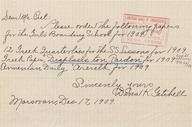 Dear Mr. Peet
Please order the following papers
for the Girls Boarding School for 1909.
12 Greek Quarterlies for the SS lessons for 1909.
Greek Paper, for 1909.
Armenian Daily, for 1909.
Sincerely yours
K. Getchell
Marsovan, Dec 17, 1909.